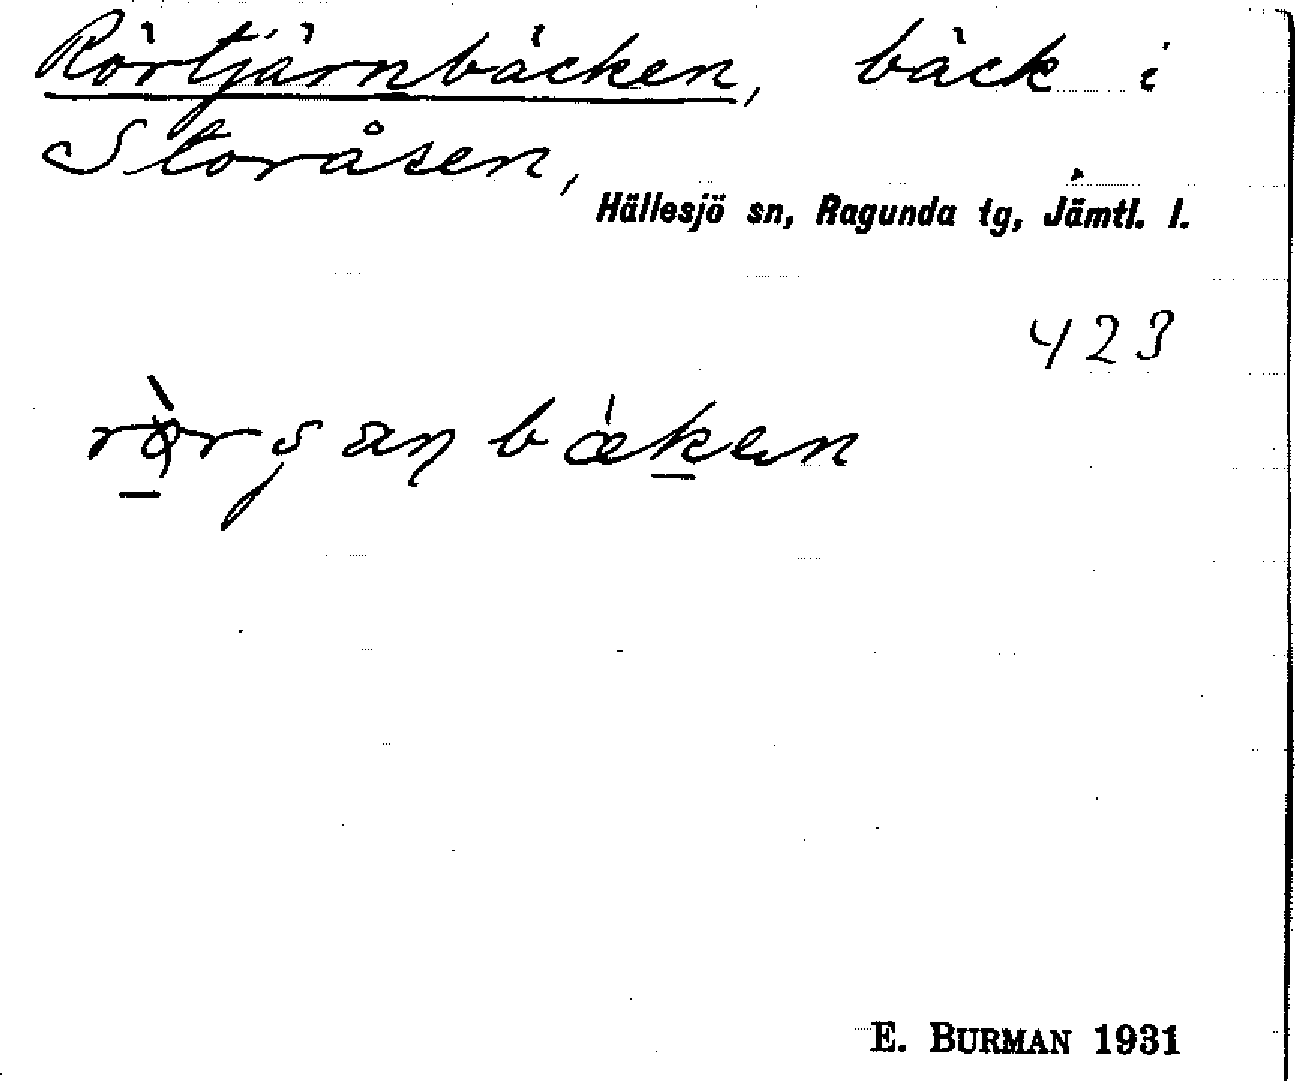 Rörtjärnbäcken, bäck i
Storåsen,
Hällesjö sn, Ragunda tg, Jämtl. l.
423
E. BURMAN 1931